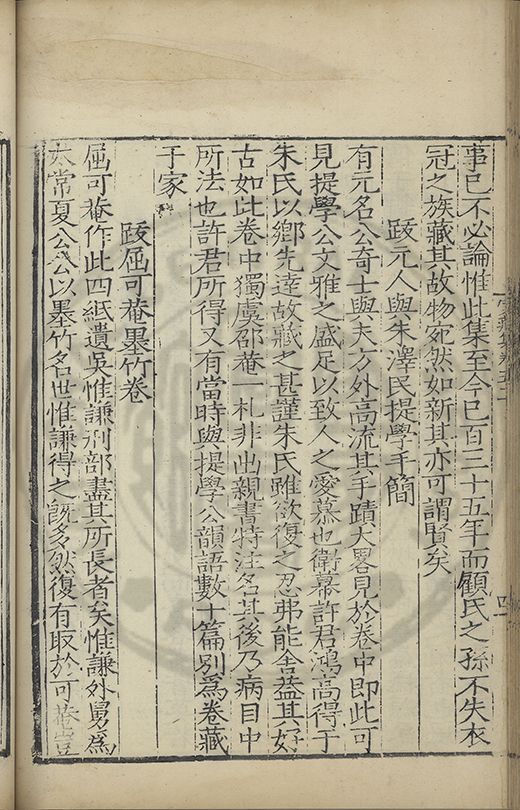 事已不必論惟此集至今已百三十五年而顧氏之孫不失衣
冠之族藏其故物宛然如新其亦可謂賢矣
跋元人與朱澤民提學手簡
有元名公奇士與夫方外高流其手蹟大畧見於卷中即此可
見提學公文雅之盛足以致人之愛慕也衛幕許君鴻高得于
朱氏以鄉先達故藏之甚謹朱氏雖欲復之忍弗能舍葢其好
古如此卷中獨虞邵菴一札非出親書特注名其後乃病目中
所法也許君所得又有當時與提學公韻語數十篇別爲卷藏
于家
跋屈可菴墨竹卷
屈可菴作此四紙遺吳惟謙刑部盡其所長者矣惟謙外舅爲
太常夏公公以墨竹名世惟謙得之旣多然復有取於可菴豈
家藏集卷五十
四